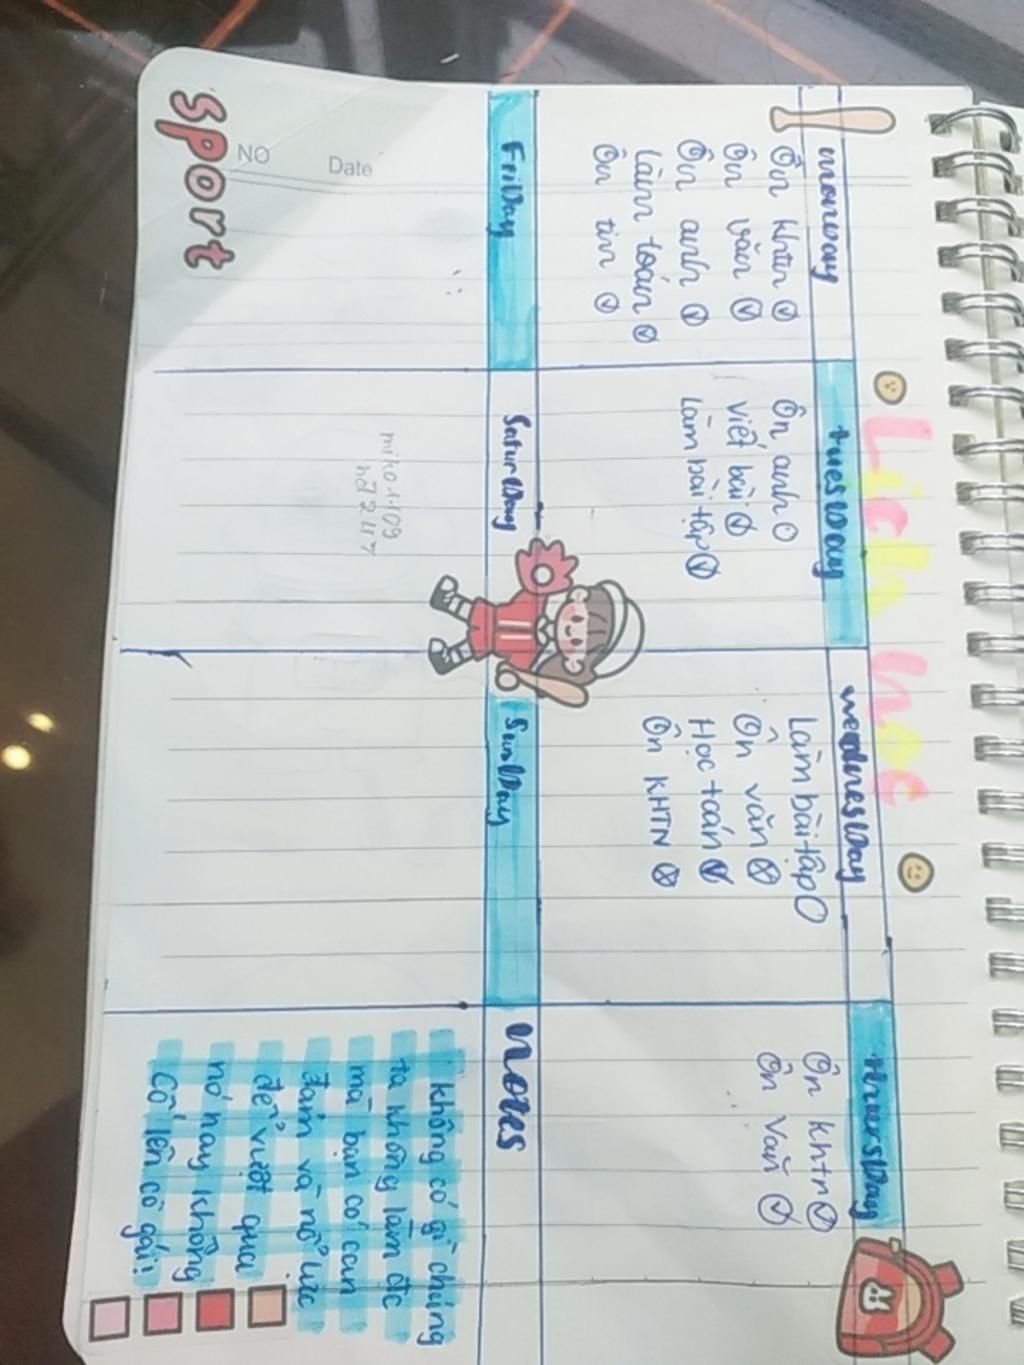 Lịch học
monday
Ôn khtn
Ôn văn
Ôn anh
Làm toán
Ôn tin
tuesday
Ôn anh
viết bài
làm bài tập
wednesday
Làm bài tập
Ôn văn
Học toán
Ôn KHTN
thursday
Ôn khtn
Ôn văn
Friday
Saturday
miko1109
Sunday
Notes
không có gì chúng
ta không làm đc
mà bạn có can
đảm và nỗ lực
để vượt qua
nó hay không
Cố lên cô gái!
NO
Date
sport